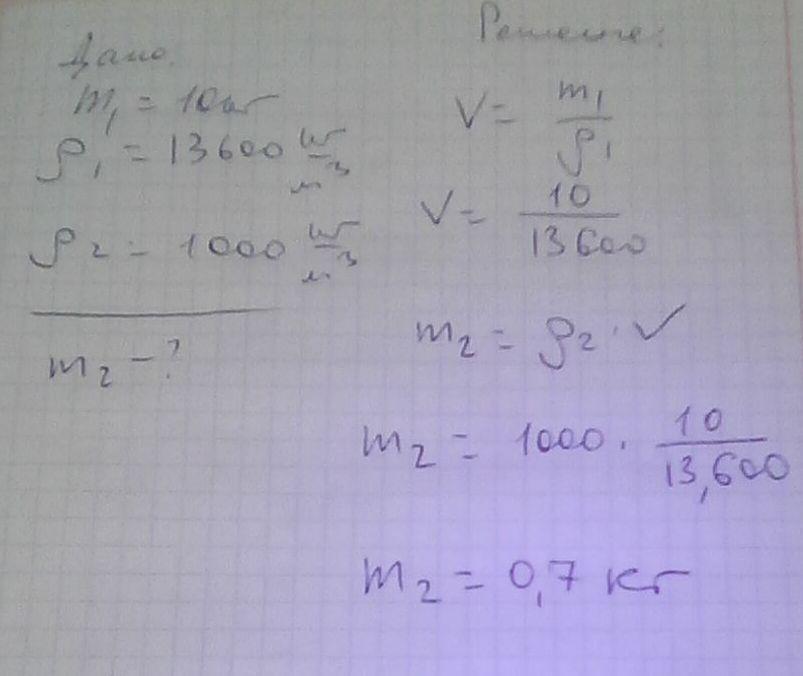 Дано:
m₁ = 10 кг
ρ₁ = 13600 кг/м³
ρ₂ = 1000 кг/м³
m₂ - ?
Решение:
V = m₁/ρ₁
V = 10/13600
m₂ = ρ₂ · V
m₂ = 1000 · 10/13,600
m₂ = 0,7 кг